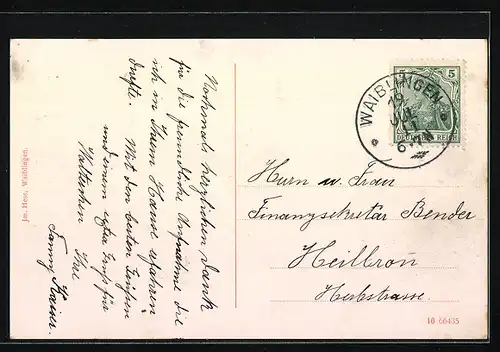 Nochmals herzlichen Dank
für die freundliche Aufnahme die
ich in Ihrem Hause erfahren
durfte. Mit den besten Grüßen
und einem extra Gruß für
Walterchen Ihre
Fanny Kaiser.
Jm. Hess, Waiblingen.
5
DEUTSCHES REICH
WAIBLINGEN
19
JUL
11
6-7N
Herrn u. Frau
Finanzsekretär Bender
Heilbron
Herbststrasse.
10 66435